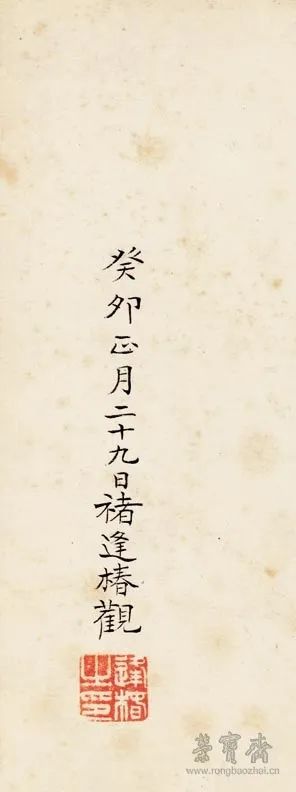 癸卯正月二十九日褚逢椿觀
逢椿之印
榮寶齋
www.rongbaozhai.cn